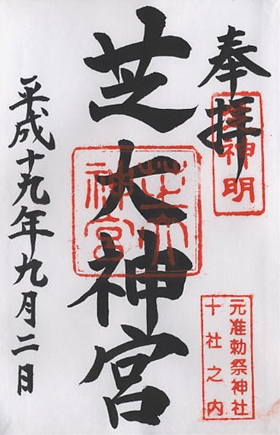 奉拝
芝神明
元准勅祭神社
十社之内
芝大神宮
芝大
神宮
平成十九年九月二日